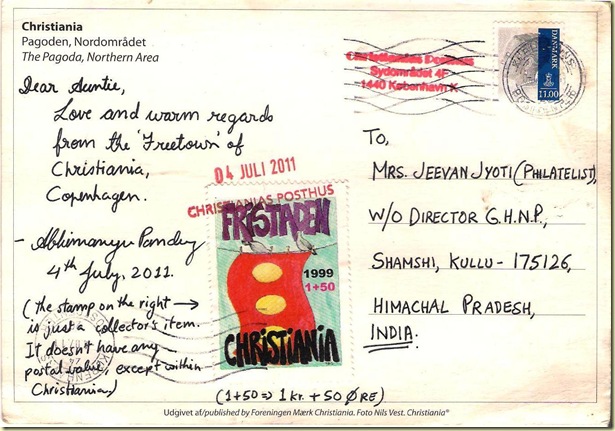 Christiania
Pagoden, Nordområdet
The Pagoda, Northern Area
Dear Auntie,
Love and warm regards
from the 'Freetown' of
Christiania,
Copenhagen.
- Abhimanyu Pandey
4th July, 2011.
(the stamp on the right →
is just a collector's item.
It doesn't have any
postal value, except within
Christiania.)
04 JULI 2011
CHRISTIANIAS POSTHUS
FRISTADEN
1999
1+50
CHRISTIANIA
(1+50 => 1 kr. + 50 ØRE)
Christianias Posthus
Sydområdet 4F
1440 København K
DANMARK
11.00
To,
MRS. JEEVAN JYOTI (PHILATELIST),
W/O DIRECTOR G.H.N.P.,
SHAMSHI, KULLU - 175126,
HIMACHAL PRADESH,
INDIA.
Udgivet af/published by Foreningen Mærk Christiania. Foto Nils Vest. Christiania®